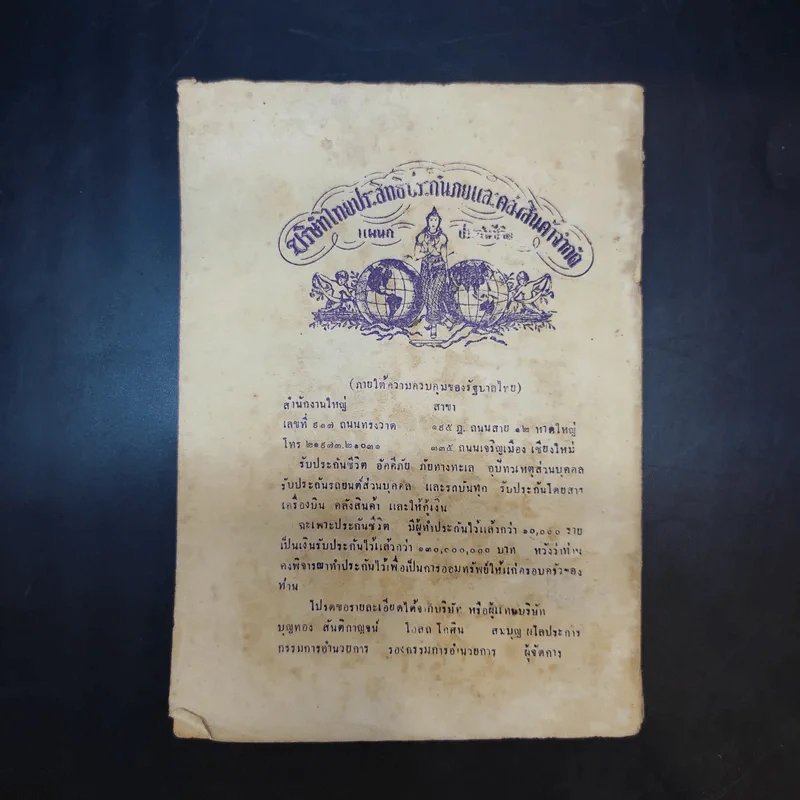 บริษัทไทยประสิทธิประกันภัยและคลังสินค้าจำกัด
แผนก ประกันชีวิต
(ภายใต้ความควบคุมของรัฐบาลไทย)
สำนักงานใหญ่ สาขา
เลขที่ ๙๑๗ ถนนทรงวาด ๑๙๕ ฎ. ถนนสาย ๑๒ หาดใหญ่
โทร ๒๑๙๗๓.๒๑๐๓๑ ๓๓๕ ถนนเจริญเมือง เชียงใหม่
รับประกันชีวิต อัคคีภัย ภัยทางทะเล อุบัทวเหตุส่วนบุคคล
รับประกันรถยนต์ส่วนบุคคล และรถบันทุก รับประกันโดยสาร
เครื่องบิน คลังสินค้า และให้กู้เงิน
ฉะเพาะประกันชีวิต มีผู้ทำประกันไว้แล้วกว่า ๑๐,๐๐๐ ราย
เป็นเงินรับประกันไว้แล้วกว่า ๑๓๐,๐๐๐,๐๐๐ บาท หวังว่าท่าน
คงพิจารณาทำประกันไว้เพื่อเป็นการออมทรัพย์ให้แก่ครอบครัวของ
ท่าน
โปรดขอรายละเอียดได้จากบริษัท หรือผู้แทนบริษัท
บุญทอง สันติกาญจน์ โอสถ โกศิน สมบุญ
กรรมการอำนวยการ รองกรรมการอำนวยการ ผู้จัดการ